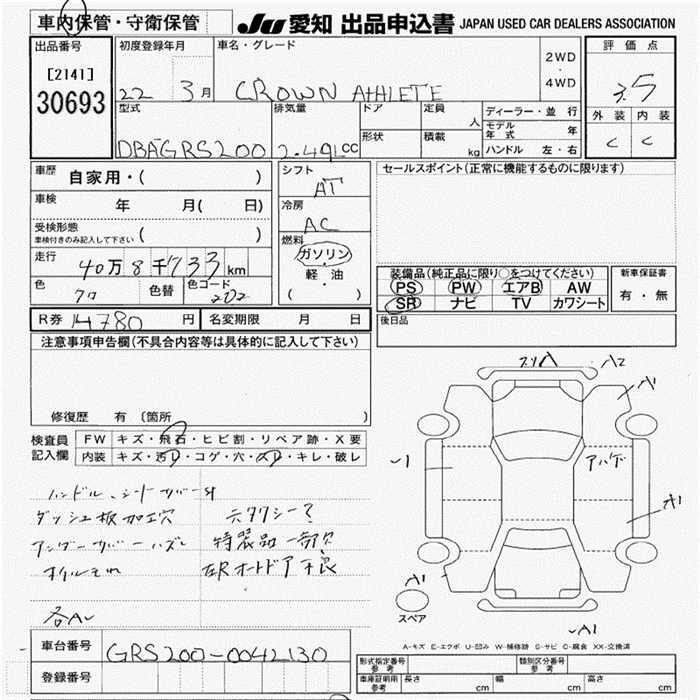 車内保管・守衛保管
JU 愛知 出品申込書 JAPAN USED CAR DEALERS ASSOCIATION
出品番号 初度登録年月 車名・グレード 評価点
[2141]
30693
22 3月 CROWN ATHLETE 2WD 4WD
3.5
外装 内装
C C
型式 排気量 ドア 定員 人 ディーラー・並行
形状 積載 kg モデル年式 年
ハンドル 左・右
DBAGRS200 2.49LCC
車歴 自家用・( )
シフト AT
セールスポイント(正常に機能するものに限ります)
車検 年 月( 日)
冷房 AC
受検形態
車検付きのみ記入して下さい ( )
燃料
ガソリン
軽・油
( )
走行 40万8千733km
装備品(純正品に限り○をつけてください) 新車保証書
PS PW エアB AW 有・無
SR ナビ TV カワシート
色 クロ 色替 色コード 202
後日品
R券 14780円 名変期限 月 日
注意事項申告欄(不具合内容等は具体的に記入して下さい)
修復歴 有(箇所 )
検査員記入欄 FW キズ・飛石・ヒビ割・リペア跡・X要
内装 キズ・汚レ・コゲ・穴・スレ・キレ・破レ
ハンドル、シートカバー付
ダッシュ板加工穴 元タクシー?
アンダーカバーハズレ 特装品一部欠
オイルモレ 右Rオートドア不良
各A
A2
アハゲ
A1
スペア
A1
A-キズ E-エクボ U-凹み W-補修跡 S-サビ C-腐食 XX-交換済
車台番号 GRS200-0042130
登録番号
形式指定番号 参考 類別区分番号 参考
車庫証明用 参考 長さ cm 幅 cm 高さ cm